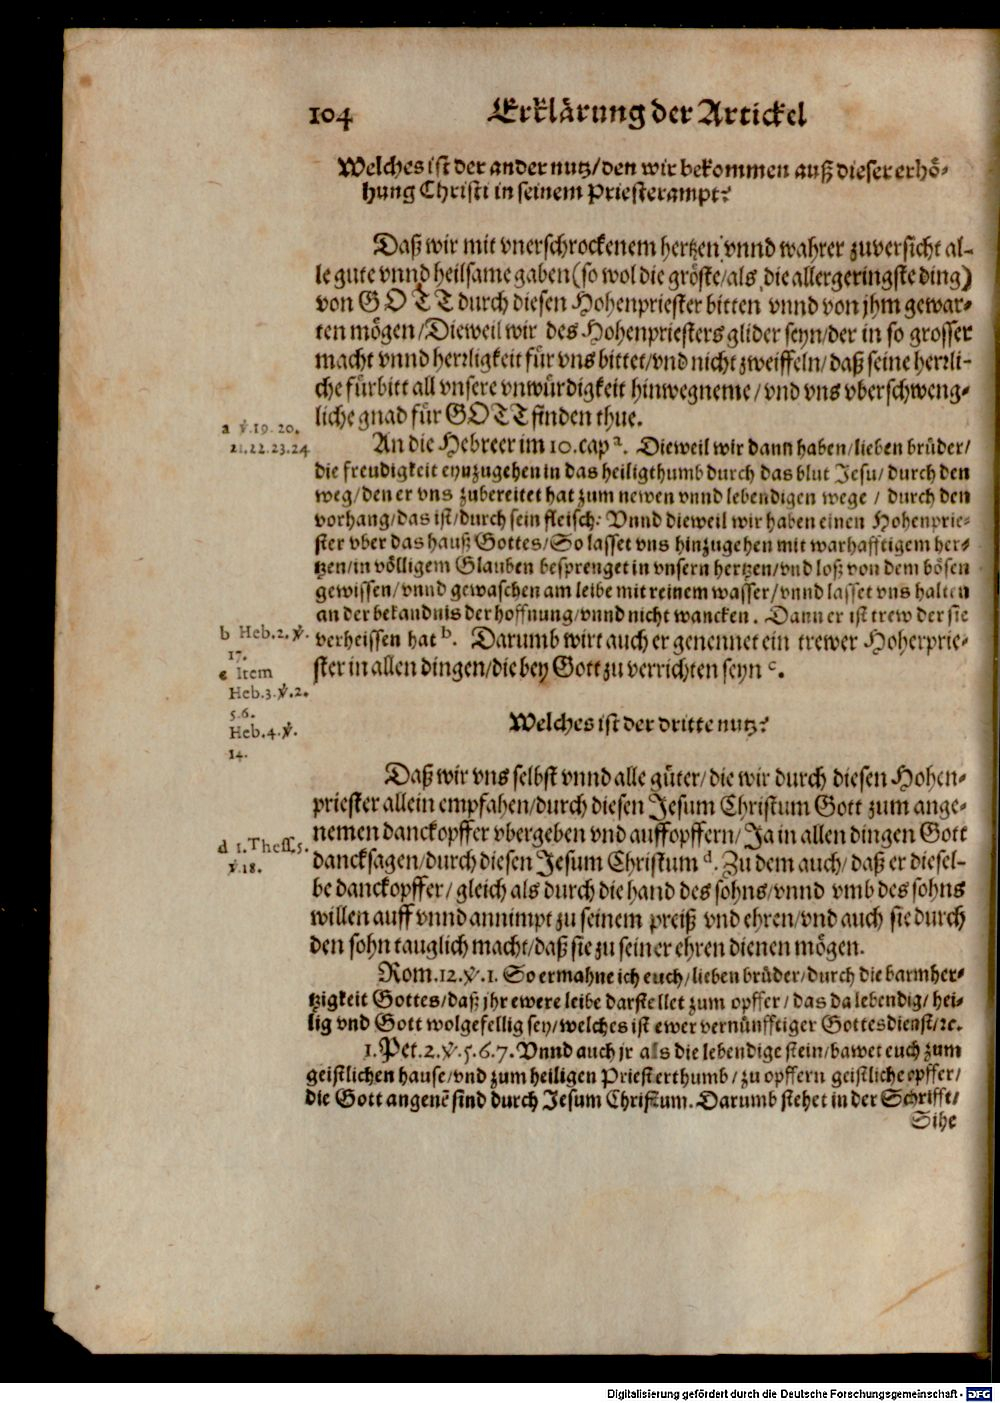 104 Erklärung der Artickel
Welches ist der ander nutz/den wir bekommen auß dieser erhö-
hung Christi in seinem Priesterampt?
Daß wir mit vnerschrockenem hertzen vnnd wahrer zuversicht al-
le gute vnnd heilsame gaben (so wol die gröste/als die allergeringste ding)
von GOTT durch diesen Hohenpriester bitten vnnd von jhm gewar-
ten mögen/Dieweil wir des Hohenpriesters glider seyn/der in so grosser
macht vnnd herrligkeit für vns bittet/vnd nicht zweiffeln/daß seine herrli-
che fürbitt all vnsere vnwürdigkeit hinwegneme/vnd vns vberschweng-
liche gnad für GOTT finden thue.
a ℣.19.20.
21.22.23.24
An die Hebreer im 10.cap a. Dieweil wir dann haben/lieben brüder/
die freudigkeit eynzugehen in das heiligthumb durch das blut Jesu/durch den
weg/den er vns zubereitet hat zum newen vnnd lebendigen wege / durch den
vorhang/das ist/durch sein fleisch: Vnnd dieweil wir haben einen Hohenprie-
ster vber das hauß Gottes/So lasset vns hinzugehen mit warhafftigem her-
tzen/in völligem Glauben besprenget in vnsern hertzen/vnd loß von dem bösen
gewissen/vnnd gewaschen am leibe mit reinem wasser/vnnd lasset vns halten
an der bekandnis der hoffnung/vnnd nicht wancken. Dann er ist trew der sie
verheissen hat b. Darumb wirt auch er genennet ein trewer Hoherprie-
ster in allen dingen/die bey Gott zu verrichten seyn c.
b Heb.2.℣.
17.
c Item
Heb.3.℣.2.
5.6.
Heb.4.℣.
14.
Welches ist der dritte nutz?
Daß wir vns selbst vnnd alle güter/die wir durch diesen Hohen-
priester allein empfahen/durch diesen Jesum Christum Gott zum ange-
nemen danckopffer vbergeben vnd auffopffern/Ja in allen dingen Gott
dancksagen/durch diesen Jesum Christum d. Zu dem auch/daß er diesel-
be danckopffer/gleich als durch die hand des sohns/vnnd vmb des sohns
willen auff vnnd annimpt zu seinem preiß vnd ehren/vnd auch sie durch
den sohn tauglich macht/daß sie zu seiner ehren dienen mögen.
d 1.Thess.5.
℣.18.
Rom.12.℣.1. So ermahne ich euch/lieben brüder/durch die barmher-
tzigkeit Gottes/daß jhr ewere leibe darstellet zum opffer/das da lebendig/hei-
lig vnd Gott wolgefellig sey/welches ist ewer vernünfftiger Gottesdienst/ꝛc.
1.Pet.2.℣.5.6.7. Vnnd auch jr als die lebendige stein/bawet euch zum
geistlichen hause/vnd zum heiligen Priesterthumb/zu opffern geistliche opffer/
die Gott angenẽ sind durch Jesum Christum. Darumb stehet in der Schrifft/
Sihe
Digitalisierung gefördert durch die Deutsche Forschungsgemeinschaft - DFG